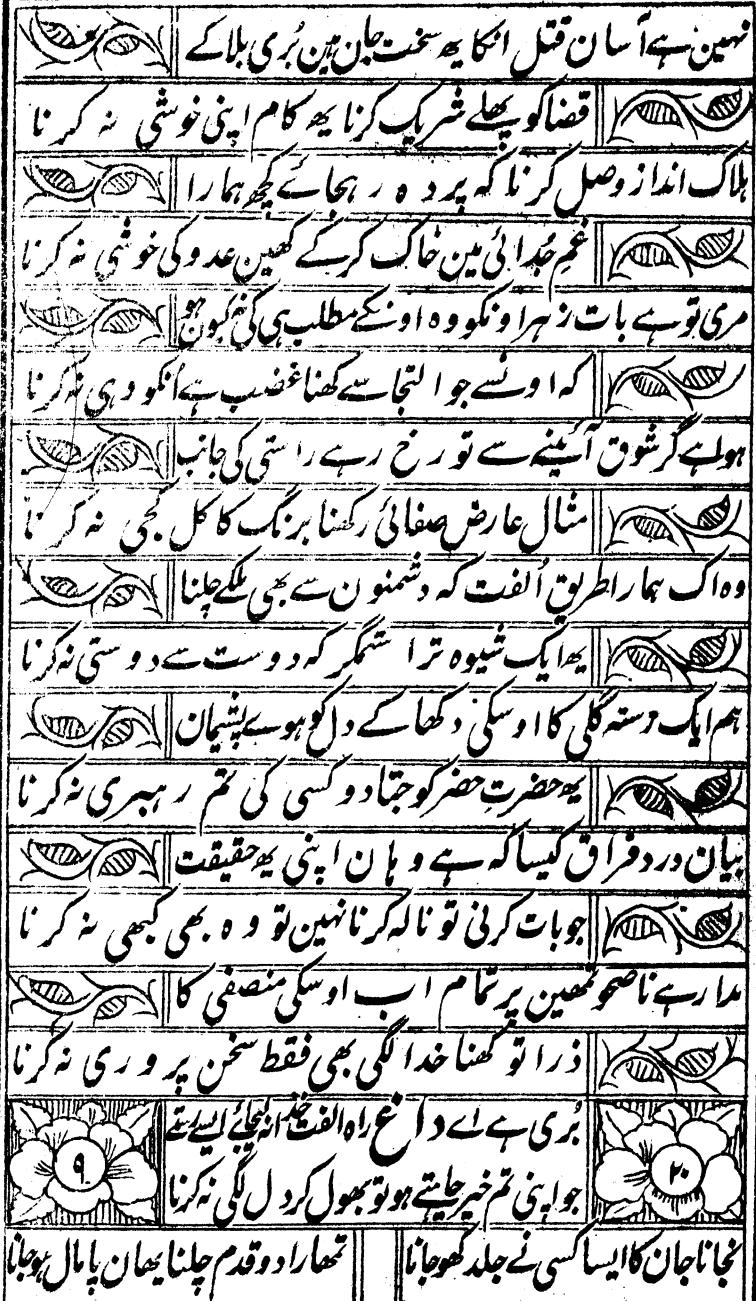 نہین ہے آسان قتل انکا یہ سخت جان ہین بُری بلا کے
قضا کو پھلے شریک کرنا یہ کام اپنی خوشی نہ کرنا
ہلاک انداز وصل کرنا کہ پردہ رہجائے کچھ ہمارا
غمِ جُدائی مین خاک کر کے کھین عدو کی خوشی نہ کرنا
مری تو ہے بات زہر اونکو وہ اونکے مطلب ہی کی نہ کیون ہو
کہ اونسے جو التجا سے کھنا غضب ہے اُنکو وہی نہ کرنا
ہوا ہے گر شوق آئینے سے تو رخ رہے راستی کی جانب
مثال عارض صفائی رکھنا برنگ کاکل کجی نہ کرنا
وہ اک ہمارا طریق اُلفت کہ دشمنون سے بھی ملکے چلنا
یہ ایک شیوہ ترا ستمگر کہ دوست سے دوستی نہ کرنا
ہم ایک رستہ گلی کا اوسکی دکھا کے دل کو ہوے پشیمان
یہ حضرتِ خضر کو جتا دو کسی کی تم رہبری نہ کرنا
بیان درد فراق کیسا کہ ہے وہان اپنی یہ حقیقت
جو بات کرنی تو نالہ کرنا نہین تو وہ بھی کبھی نہ کرنا
مدار ہے ناصحو تمھین پر تمام اب اوسکی منصفی کا
ذرا تو کھنا خدا لگی بھی فقط سخن پروری نہ کرنا
بُری ہے اے داغ راہ الفت خدا نہ لیجائے ایسے رستے
۲۰ ۹
جو اپنی تم خیر چاہتے ہو تو بھول کر دل لگی نہ کرنا
نجانا جان کا ایسا کسی نے جلد کھو جانا تمھارا دو قدم چلنا یھان پامال ہو جانا